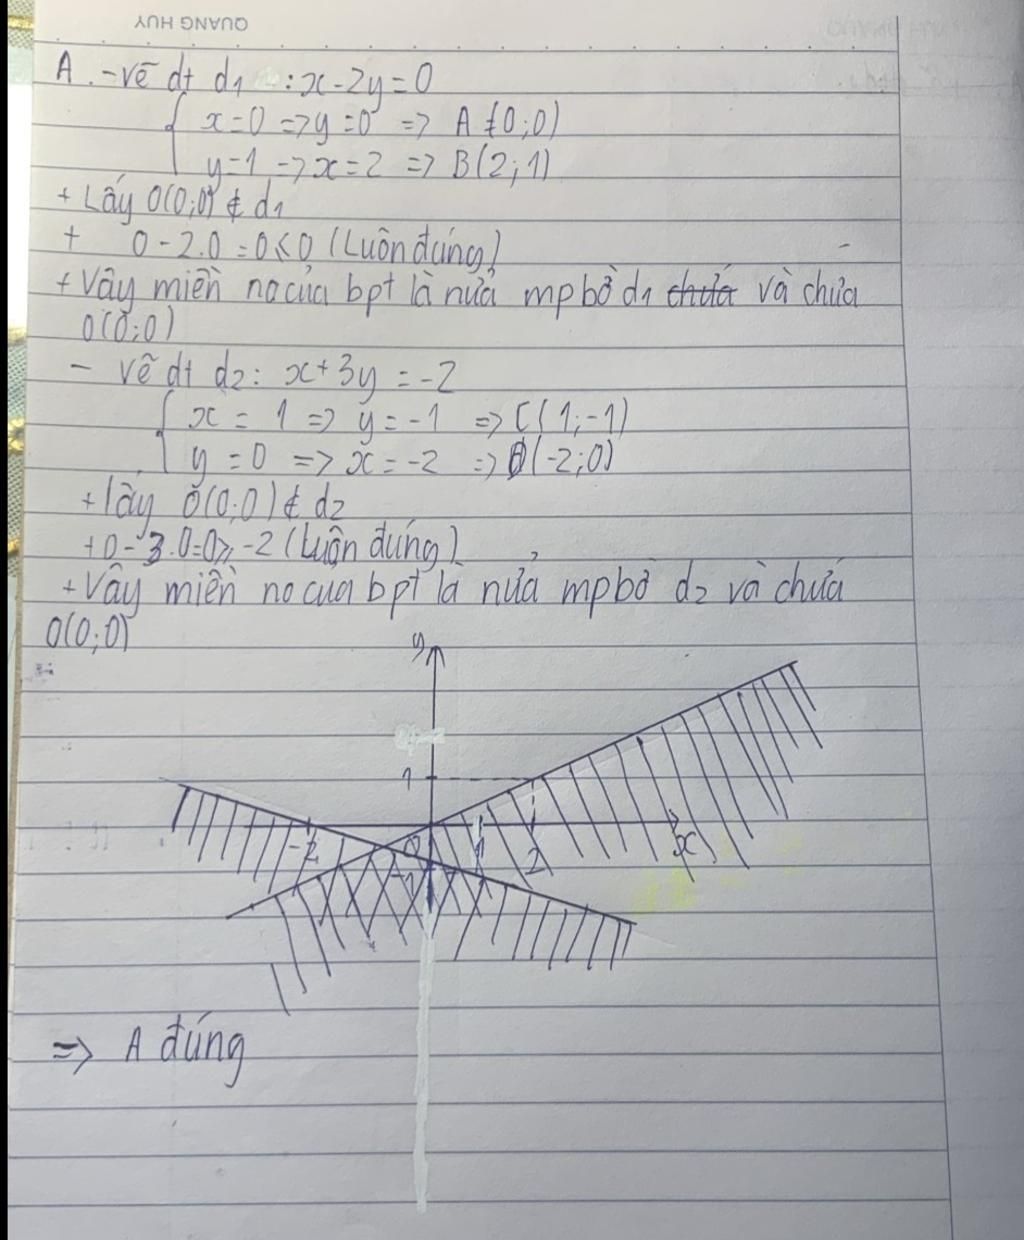 QUANG HUY
A. - vẽ dt d1 : x - 2y = 0
x = 0 => y = 0 => A(0;0)
y = 1 => x = 2 => B(2;1)
+ Lấy O(0;0) ∉ d1
+ 0 - 2.0 = 0 ≤ 0 (Luôn đúng)
+ Vậy miền no của bpt là nửa mp bờ d1 chứa và chứa
O(0;0)
- vẽ dt d2: x + 3y = -2
x = 1 => y = -1 => C(1;-1)
y = 0 => x = -2 => D(-2;0)
+ lấy O(0;0) ∉ d2
+ 0 - 3.0 = 0 ≥ -2 (Luôn đúng)
+ Vậy miền no của bpt là nửa mp bờ d2 và chứa
O(0;0)
y
1
-2 0 1 2 x
-1
=> A đúng